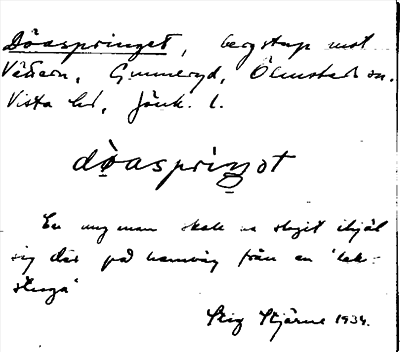 Döaspringet, bergstup mot
Vättern, Gummeryd, Ölmstads sn.
Vista hd, Jönk. l.
dòaspriŋ̲ot
En ung man skall ha slagit ihjäl
sig där på hemväg från en 'lek-
stuga'
Stig Stjärne 1934.